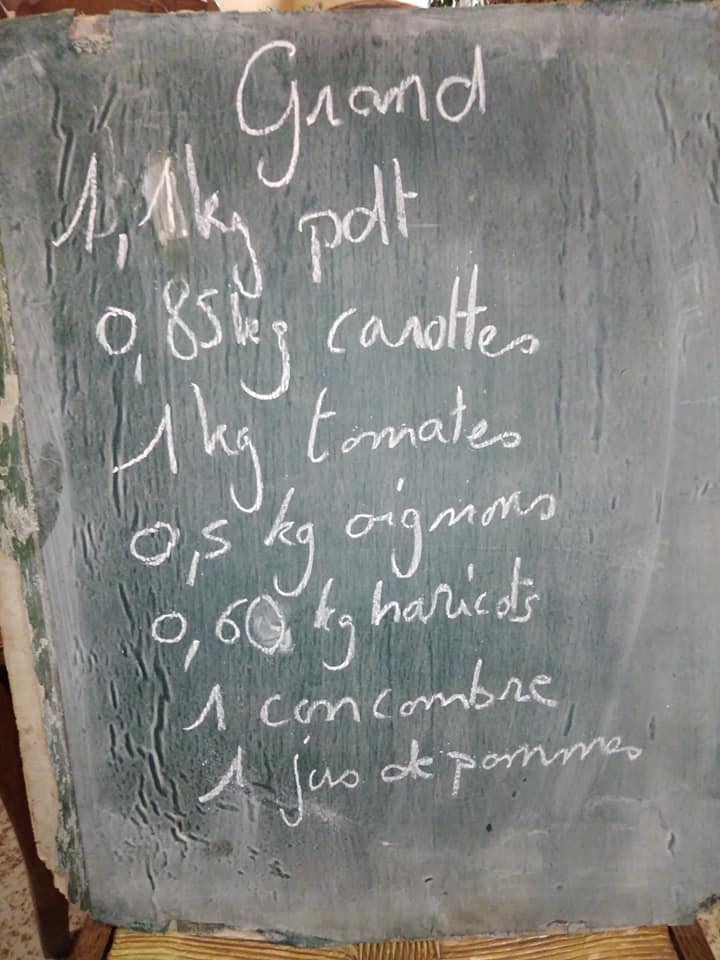 Grand
1,1kg pdt
0,85kg carottes
1kg tomates
0,5 kg oignons
0,60 kg haricots
1 concombre
1 jus de pommes